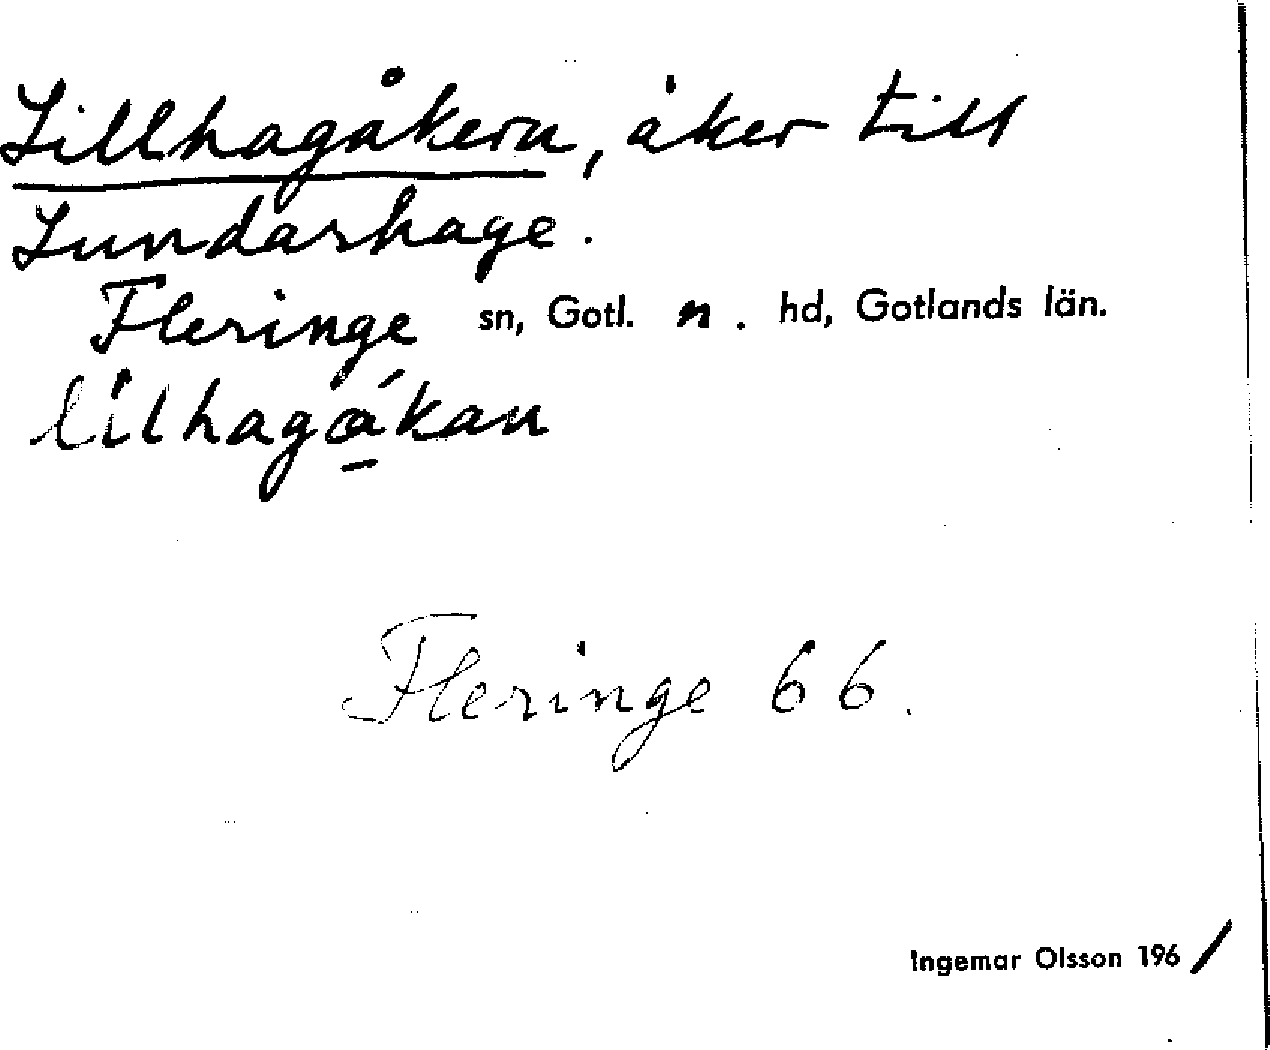 Lillhagåkern, åker till
Lundarhage.
Fleringe sn, Gotl. n. hd, Gotlands län.
lilhagákan
Fleringe 66.
Ingemar Olsson 196/